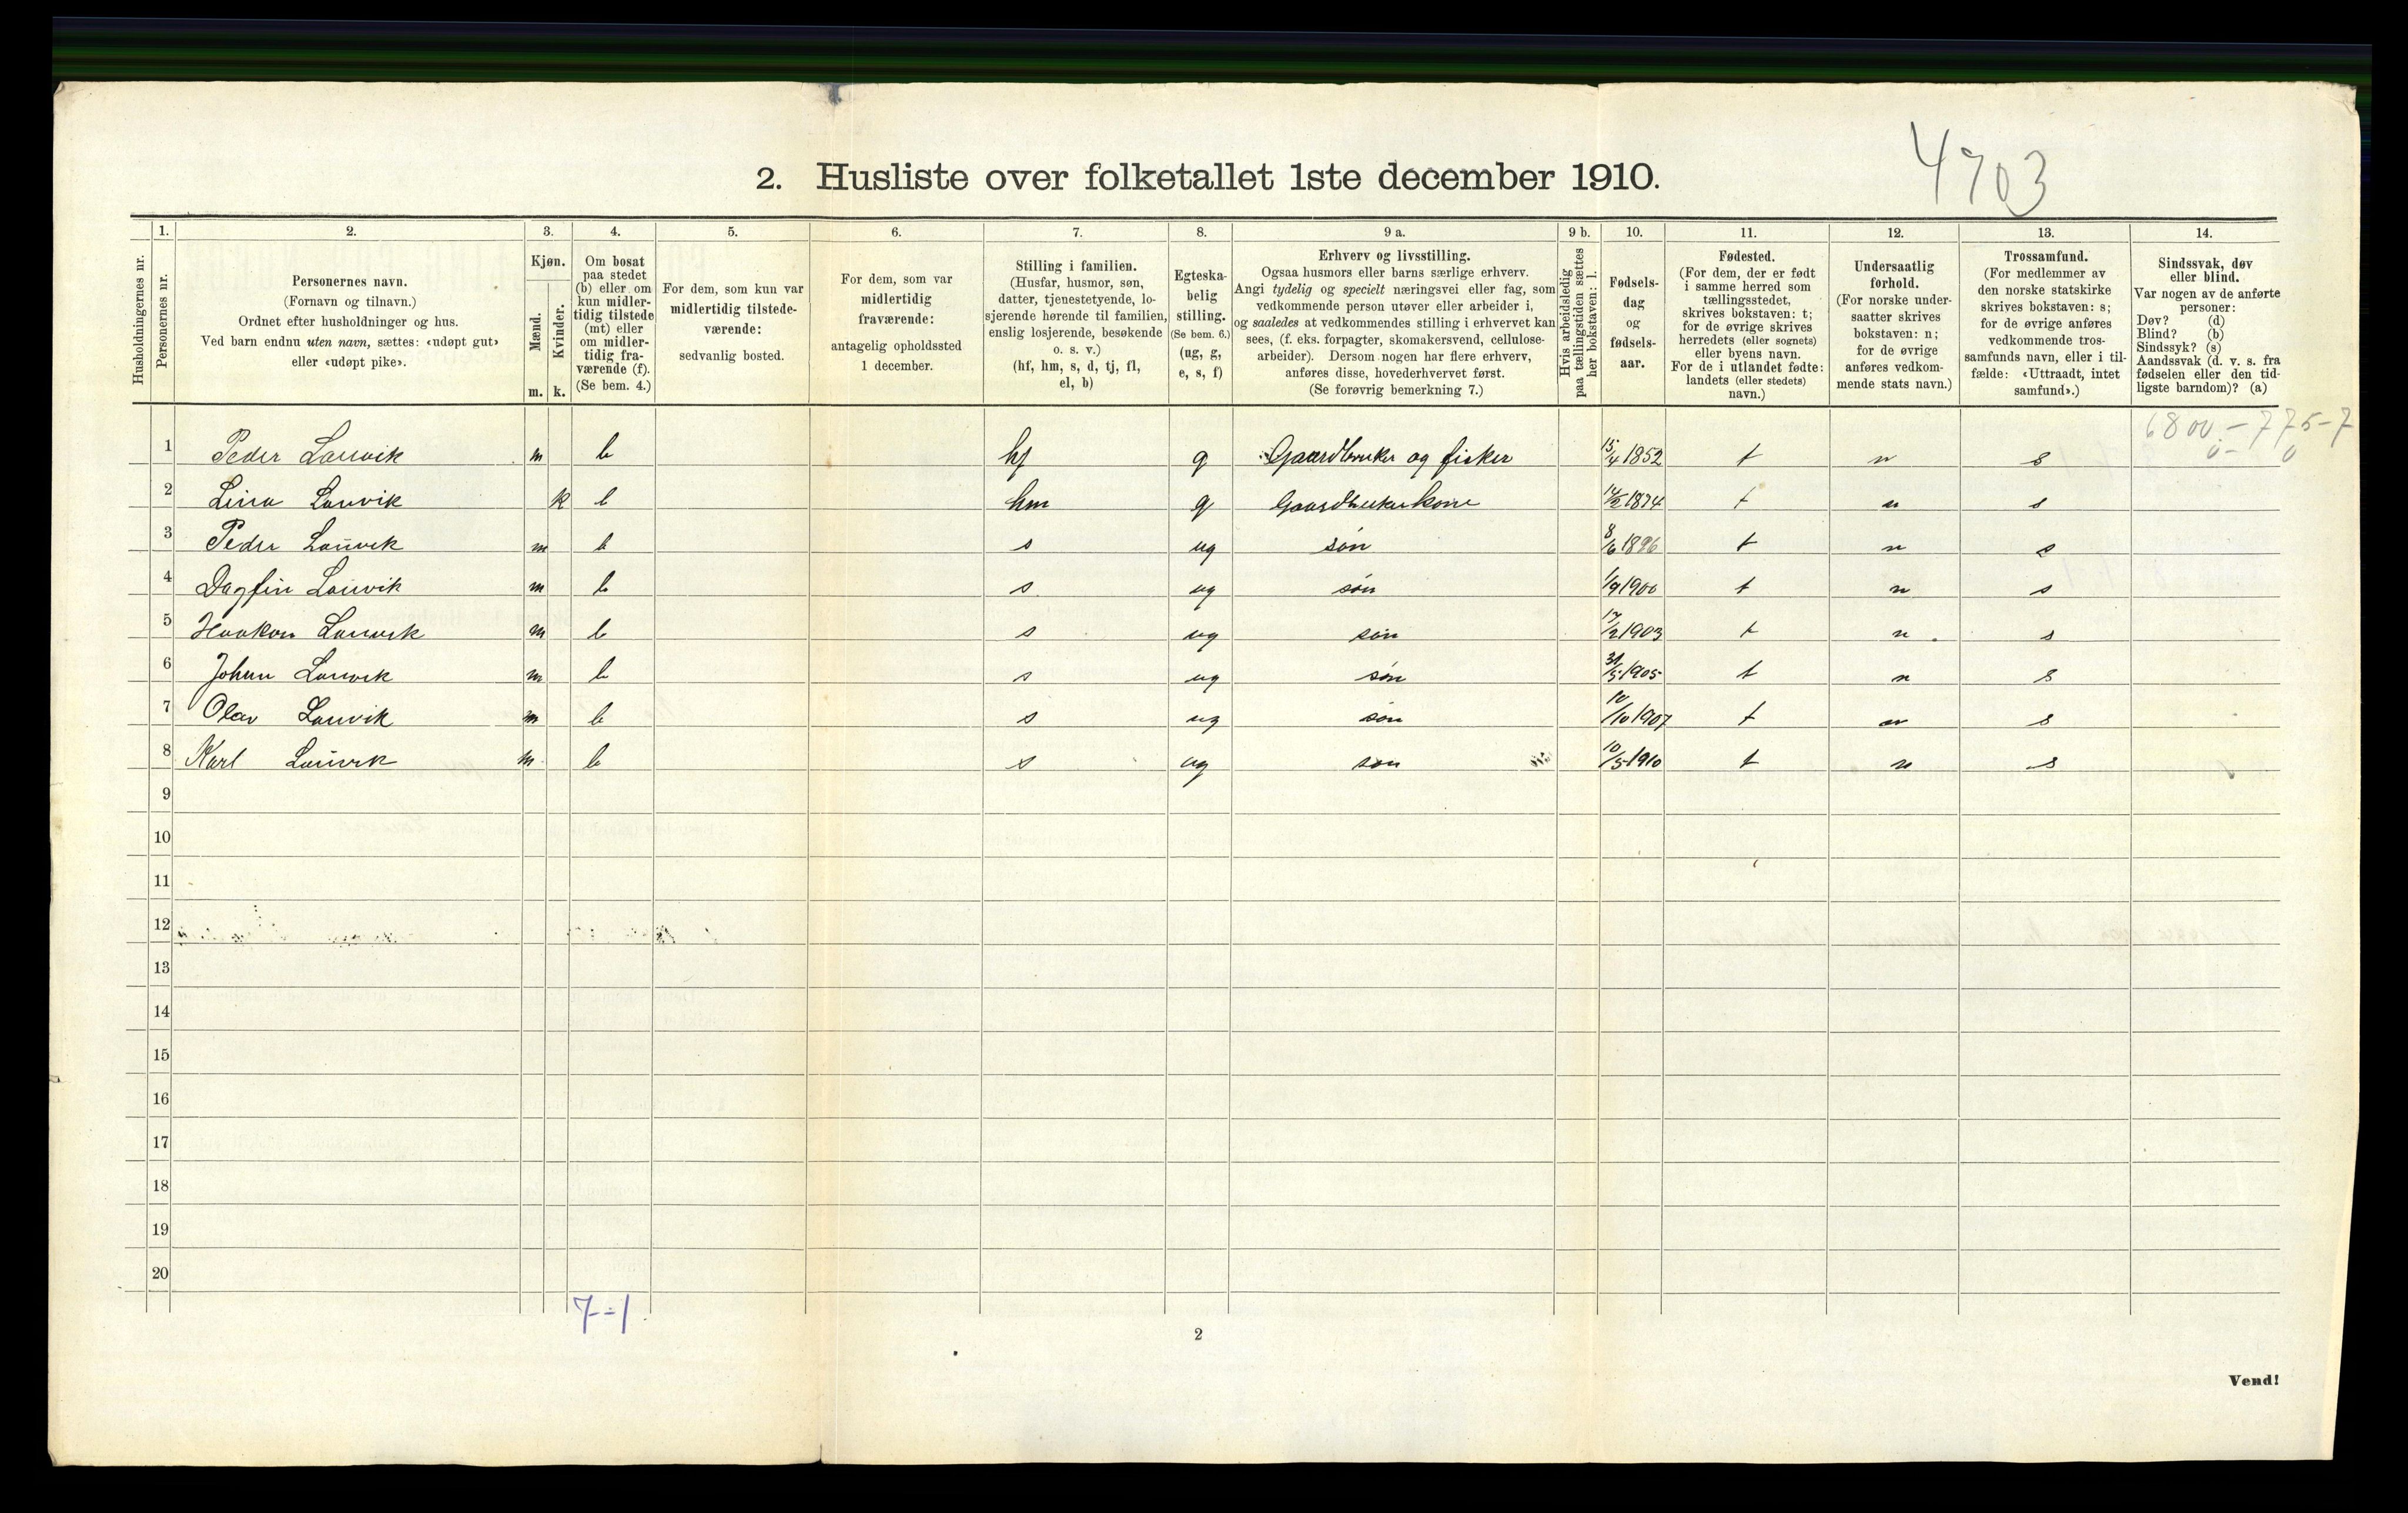 4703
2. Husliste over folketallet 1ste december 1910.
Husholdningernes nr.
1. Personernes nr.
2. Personernes navn.
(Fornavn og tilnavn.)
Ordnet efter husholdninger og hus.
Ved barn endnu uten navn, sættes: «udøpt gut»
eller «udøpt pike».
3. Kjøn.
Mænd. m.
Kvinder. k.
4. Om bosat
paa stedet
(b) eller om
kun midler-
tidig tilstede
(mt) eller
om midler-
tidig fra-
værende (f).
(Se bem. 4.)
5. For dem, som kun var
midlertidig tilstede-
værende:
sedvanlig bosted.
6. For dem, som var
midlertidig
fraværende:
antagelig opholdssted
1 december.
7. Stilling i familien.
(Husfar, husmor, søn,
datter, tjenestetyende, lo-
sjerende hørende til familien,
enslig losjerende, besøkende
o. s. v.)
(hf, hm, s, d, tj, fl,
el, b)
8. Egteska-
belig
stilling.
(Se bem. 6.)
(ug, g,
e, s, f)
9 a. Erhverv og livsstilling.
Ogsaa husmors eller barns særlige erhverv.
Angi tydelig og specielt næringsvei eller fag, som
vedkommende person utøver eller arbeider i,
og saaledes at vedkommendes stilling i erhvervet kan
sees, (f. eks. forpagter, skomakersvend, cellulose-
arbeider). Dersom nogen har flere erhverv,
anføres disse, hovederhvervet først.
(Se forøvrig bemerkning 7.)
9 b. Hvis arbeidsledig
paa tællingstiden sættes
her bokstaven: l.
10. Fødsels-
dag
og
fødsels-
aar.
11. Fødested.
(For dem, der er født
i samme herred som
tællingsstedet,
skrives bokstaven: t;
for de øvrige skrives
herredets (eller sognets)
eller byens navn.
For de i utlandet fødte:
landets (eller stedets)
navn.)
12. Undersaatlig
forhold.
(For norske under-
saatter skrives
bokstaven: n;
for de øvrige
anføres vedkom-
mende stats navn.)
13. Trossamfund.
(For medlemmer av
den norske statskirke
skrives bokstaven: s;
for de øvrige anføres
vedkommende tros-
samfunds navn, eller i til-
fælde: «Uttraadt, intet
samfund».)
14. Sindssvak, døv
eller blind.
Var nogen av de anførte
personer:
Døv? (d)
Blind? (b)
Sindssyk? (s)
Aandssvak (d. v. s. fra
fødselen eller den tid-
ligste barndom)? (a)
6800.- 775-7
0- 0
1 Peder Lauvik m b hf g Gaardbruker og fisker 15/4 1852 t n s
2 Lina Lauvik k b hm g Gaardbrukerkone 14/2 1874 t n s
3 Peder Lauvik m b s ug søn 8/6 1896 t n s
4 Dagfin Lauvik m b s ug søn 1/9 1900 t n s
5 Haakon Lauvik m b s ug søn 17/2 1903 t n s
6 Johan Lauvik m b s ug søn 31/5 1905 t n s
7 Olav Lauvik m b s ug søn 10/10 1907 t n s
8 Karl Lauvik m b s ug søn 10/5 1910 t n s
9
10
11
12
13
14
15
16
17
18
19
20
7-1
2
Vend!